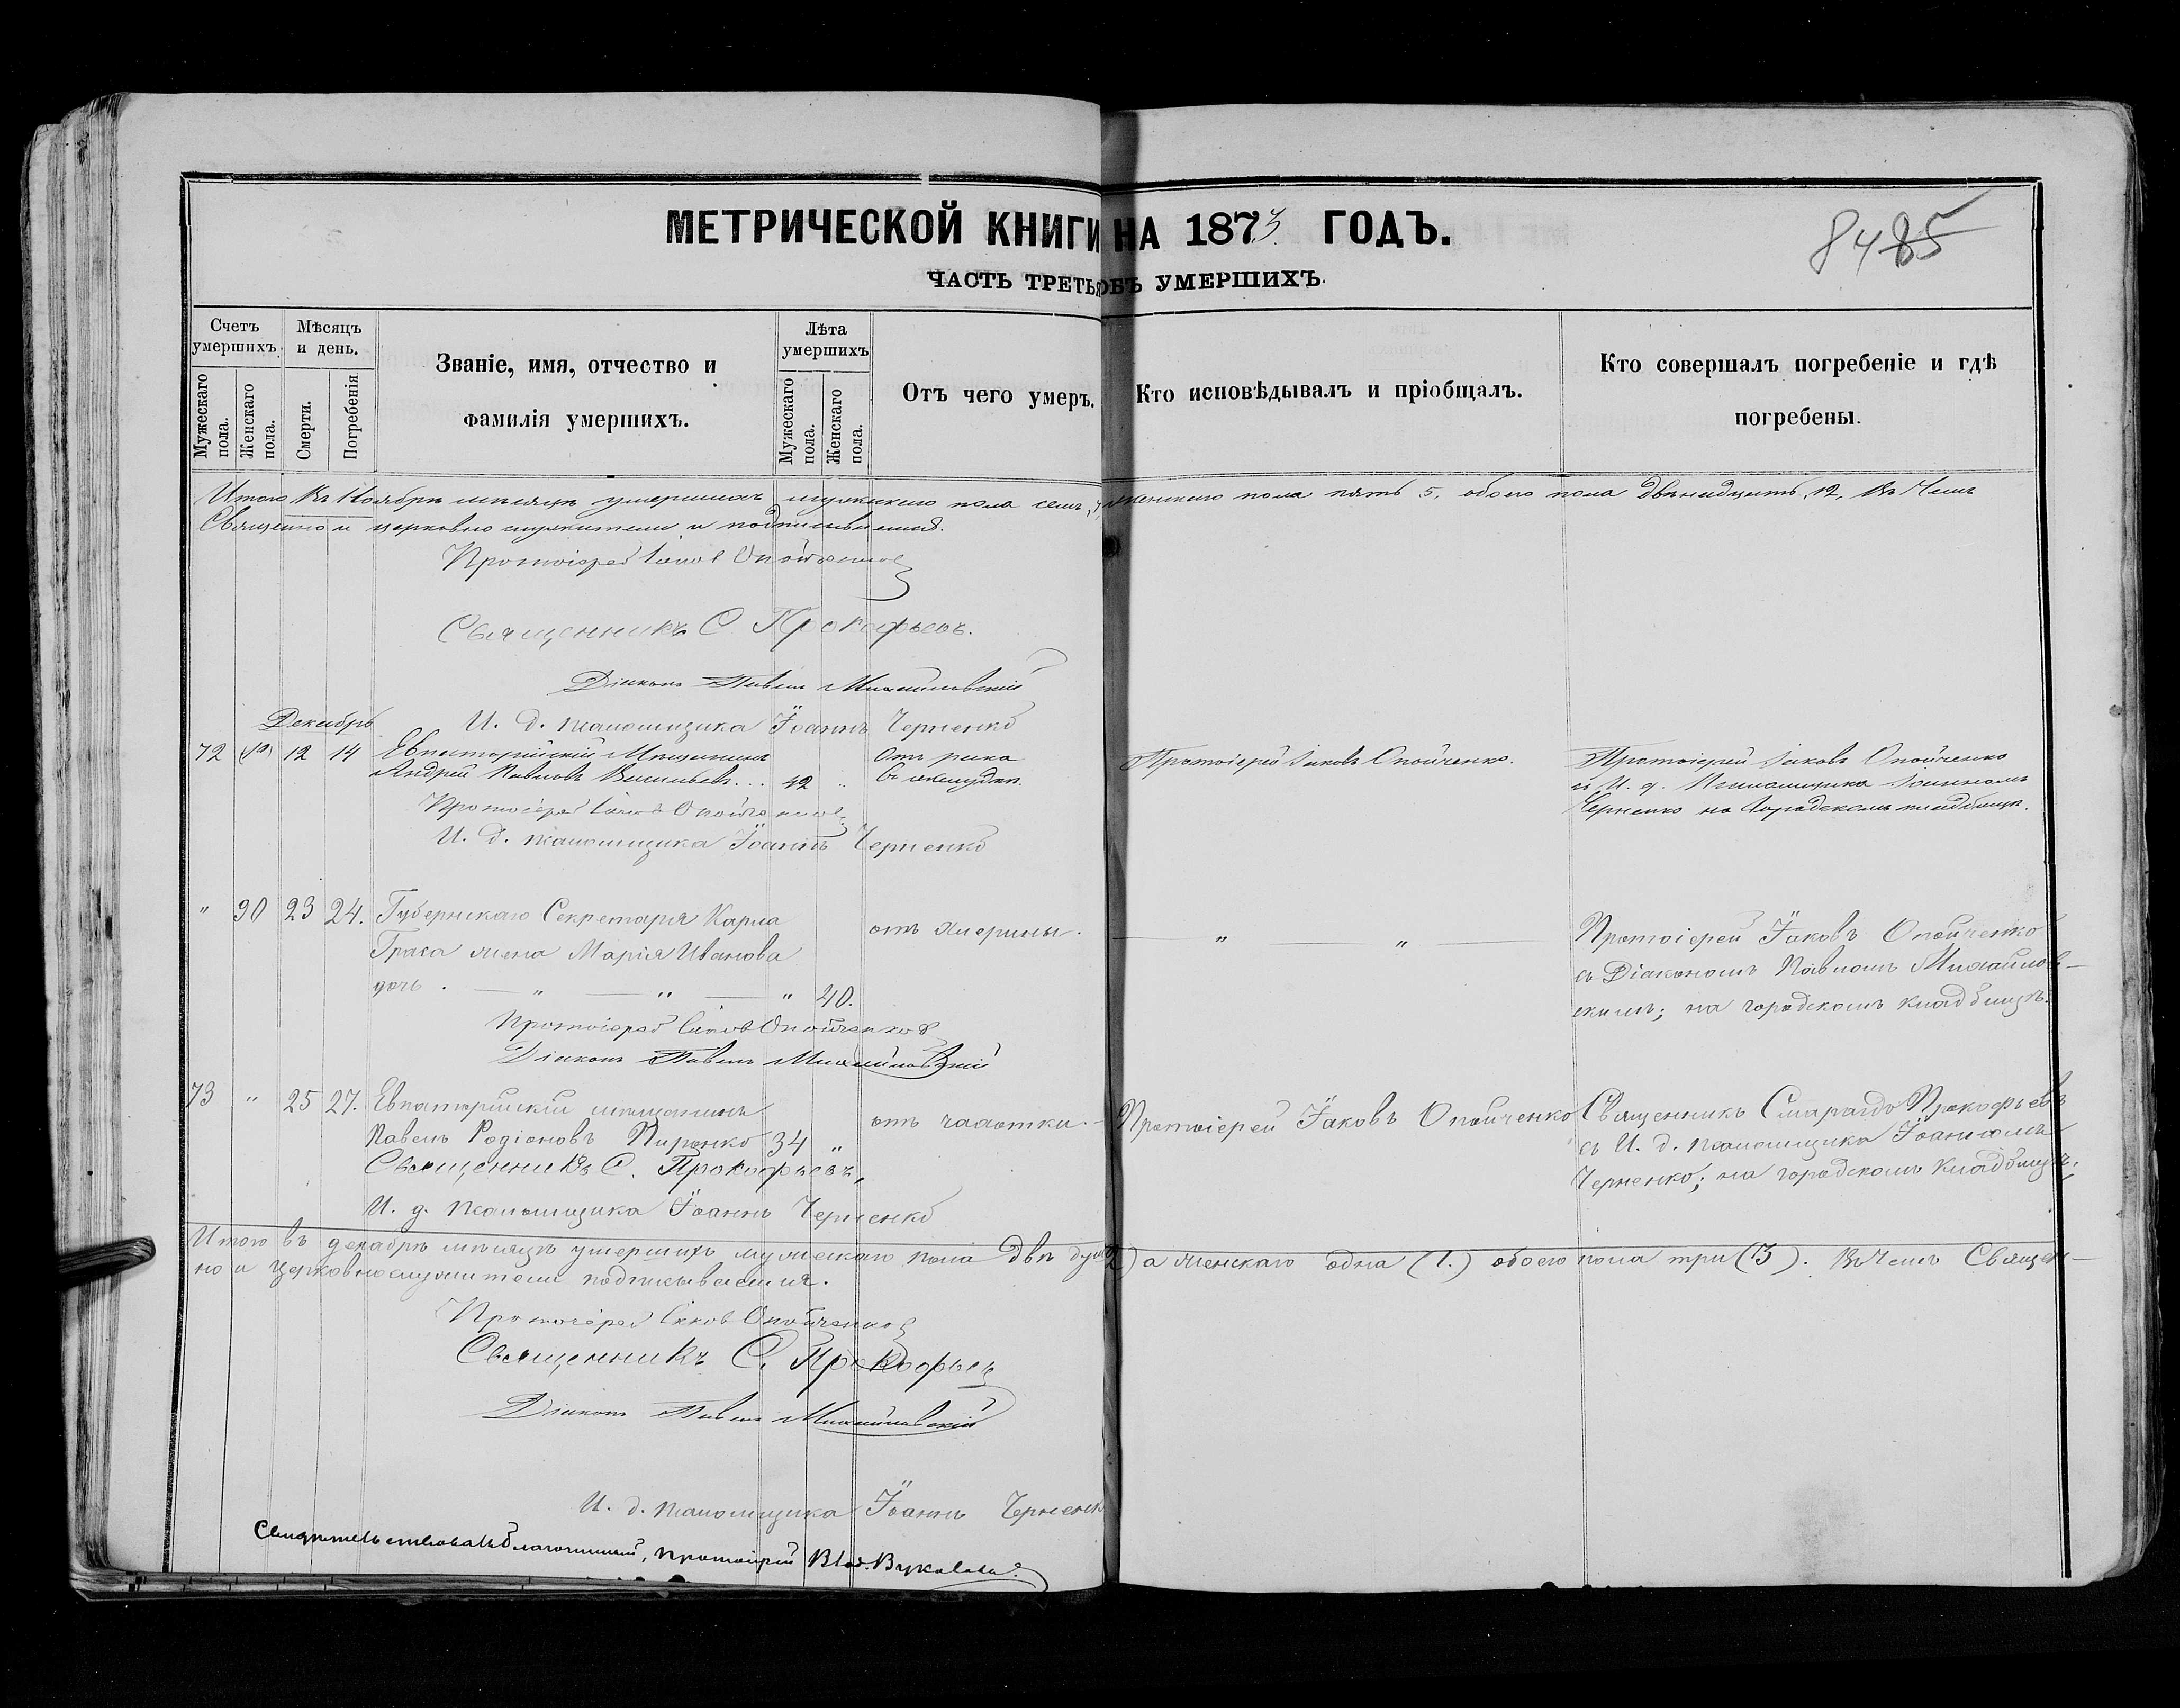 МЕТРИЧЕСКОЙ КНИГИ НА 1873 ГОДЪ.
8485
ЧАСТЬ ТРЕТЬЯ ОБЪ УМЕРШИХЪ.
Счетъ умершихъ.
Мужескаго пола.
Женскаго пола.
Мѣсяцъ и день.
Смерти.
Погребенія
Званіе, имя, отчество и
фамилія умершихъ.
Лѣта умершихъ
Мужескаго пола.
Женскаго пола.
Отъ чего умеръ.
Кто исповѣдывалъ и пріобщалъ.
Кто совершалъ погребеніе и гдѣ
погребены.
Итого въ Ноябрѣ мѣсяцѣ умершихъ мужескаго пола семь, 7, женскаго пола пять 5, обоего пола двѣнадцать, 12, въ чемъ
Священно и церковно служители и подписываемся.
Протоіерей Іаковъ Опойченко
Священникъ С. Прокофьевъ.
Діаконъ Павелъ Михайловскій
И. д. псаломщика Іоаннъ Черненко
Декабрь
72 12 14 Евпаторійскій Мѣщанинъ
Андрей Павловъ Васильевъ... 42 "
Отъ рака
въ желудкѣ.
Протоіерей Іаковъ Опойченко.
Протоіерей Іаковъ Опойченко
и И. д. Псаломщика Іоанномъ
Черненко на Городскомъ кладбищѣ.
Протоіерей Іаковъ Опойченко
И. д. псаломщика Іоаннъ Черненко
" 30 23 24. Губернскаго Секретаря Карла
жена Марія Иванова
дочь. — " — " — " 40.
" "
Протоіерей Іаковъ Опойченко
съ Діакономъ Павломъ Михайлов-
скимъ; на городскомъ кладбищѣ.
Протоіерей Іаковъ Опойченко
Діаконъ Павелъ Михайловскій
73 " 25 27. Евпаторійскій мѣщанинъ
Павелъ Родіоновъ 34 "
отъ чахотки.
Протоіерей Іаковъ Опойченко
Священникъ Смарагдъ Прокофьевъ
съ И. д. псаломщика Іоанномъ
Черненко; на городскомъ кладбищѣ;
Священникъ С. Прокофьевъ,
И. д. псаломщика Іоаннъ Черненко
Итого въ декабрѣ мѣсяцѣ умершихъ мужескаго пола двѣ души (2) а женскаго одна (1.) обоего пола три (3). Въ чемъ Священ-
но и церковнослужители подписываемся.
Протоіерей Іаковъ Опойченко
Священникъ С. Прокофьевъ
Діаконъ Павелъ Михайловскій
И. д. псаломщика Іоаннъ Черненко
Свидѣтельствовалъ благочинный, протоіерей Влад. Вуколовъ.